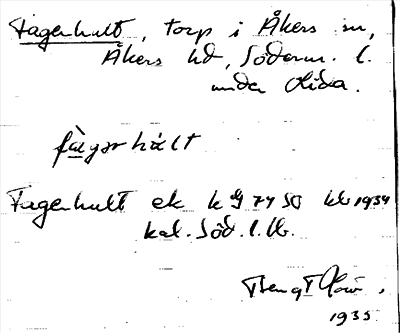 Fagerhult, torp i Åkers sn,
Åkers hd, Söderm. l.
under Olida.
fàgərhúlt
Fagerhult ek kbl 74 SO hbr 1934
kal. Söd. l. lk.
Bengt
1935